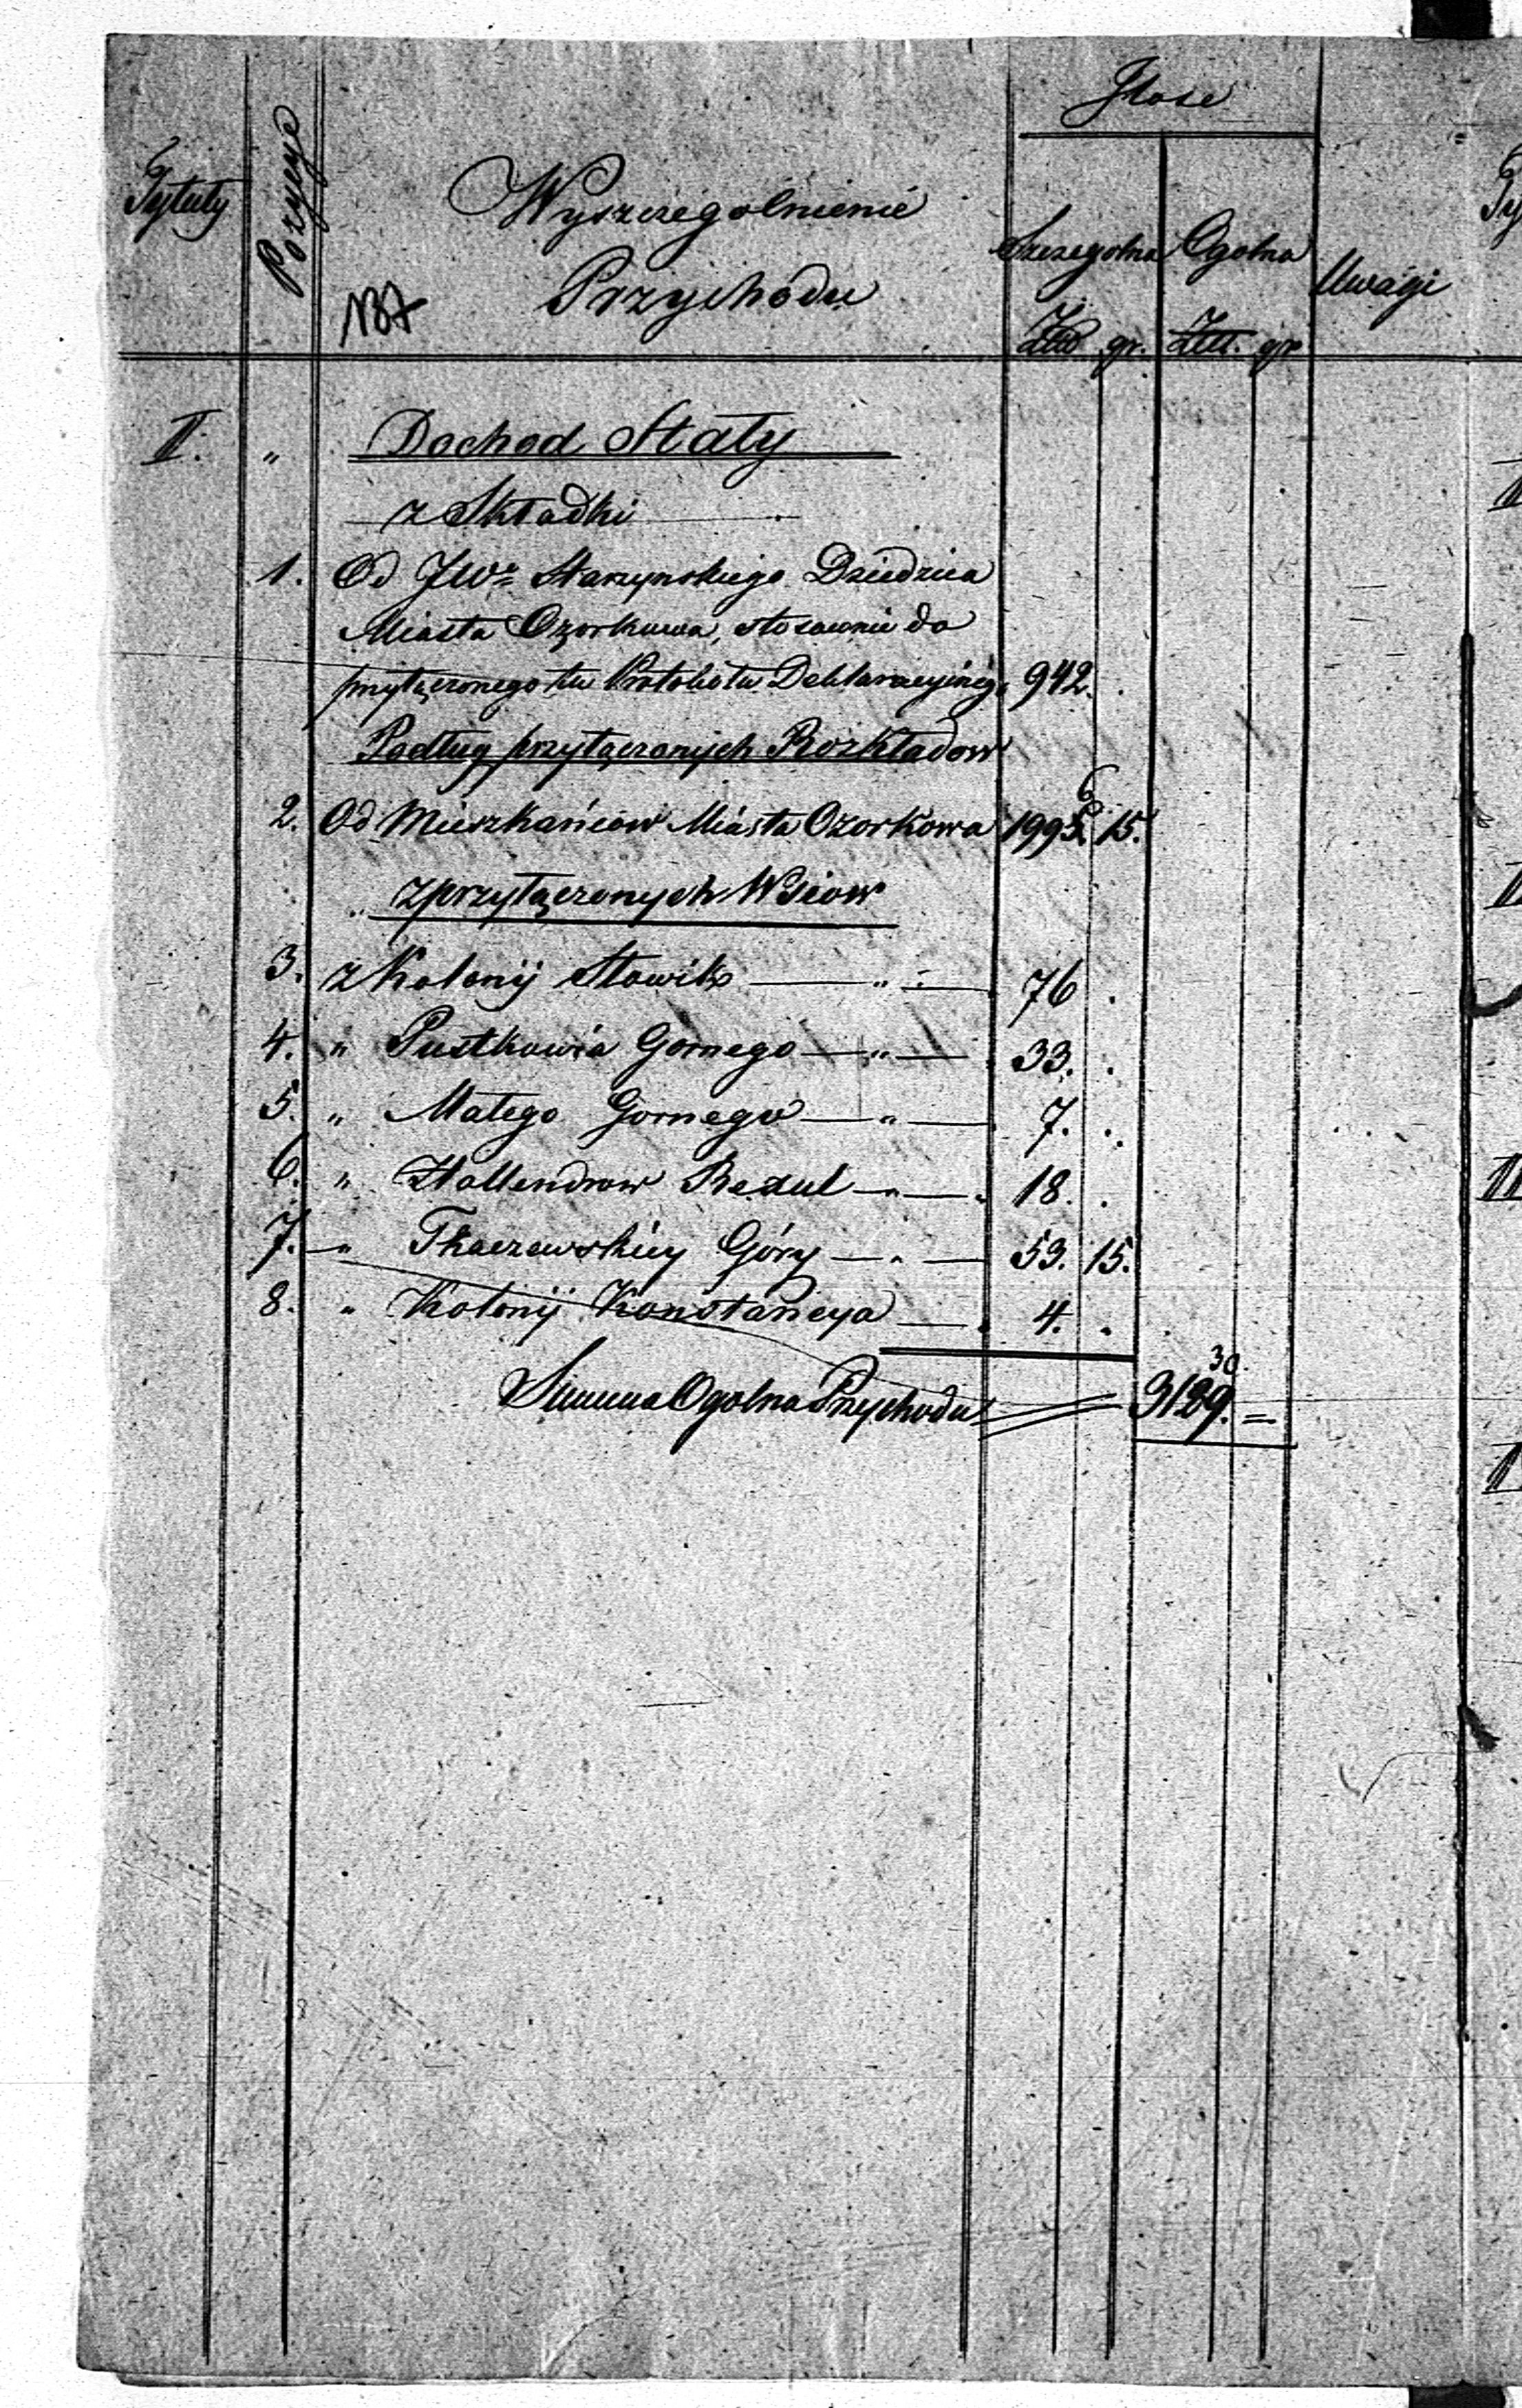 Jlose
Tytuły Pozycye Wyszczegolnienie Szczegolna Ogolna Uwagi
137 Przychodu Złtt. gr. Złtt. gr.
II. " Dochod Stały
z Składki
1. Od JWo Starzynskiego Dziedzica
Miasta Ozorkowa, stosownie do
przyłączonego tu Protokołu Deklaracyinego 942.
Podług przyłączonych Rozkładow
6
2. Od Mieszkańcow Miasta Ozorkowa 1995. 15.
z przyłączonych Wsiow
3. z Kolonij Słowik " 76 .
4. " Pustkowia Gornego " 33. .
5. " Małego Gornego " 7. .
6. " Hollendrow Bezul " 18. .
7. " Tkaczewskiey Góry " 53. 15.
8. " Kolonij Konstancya 4. .
30.
Summa Ogolna Przychodu 3129. =